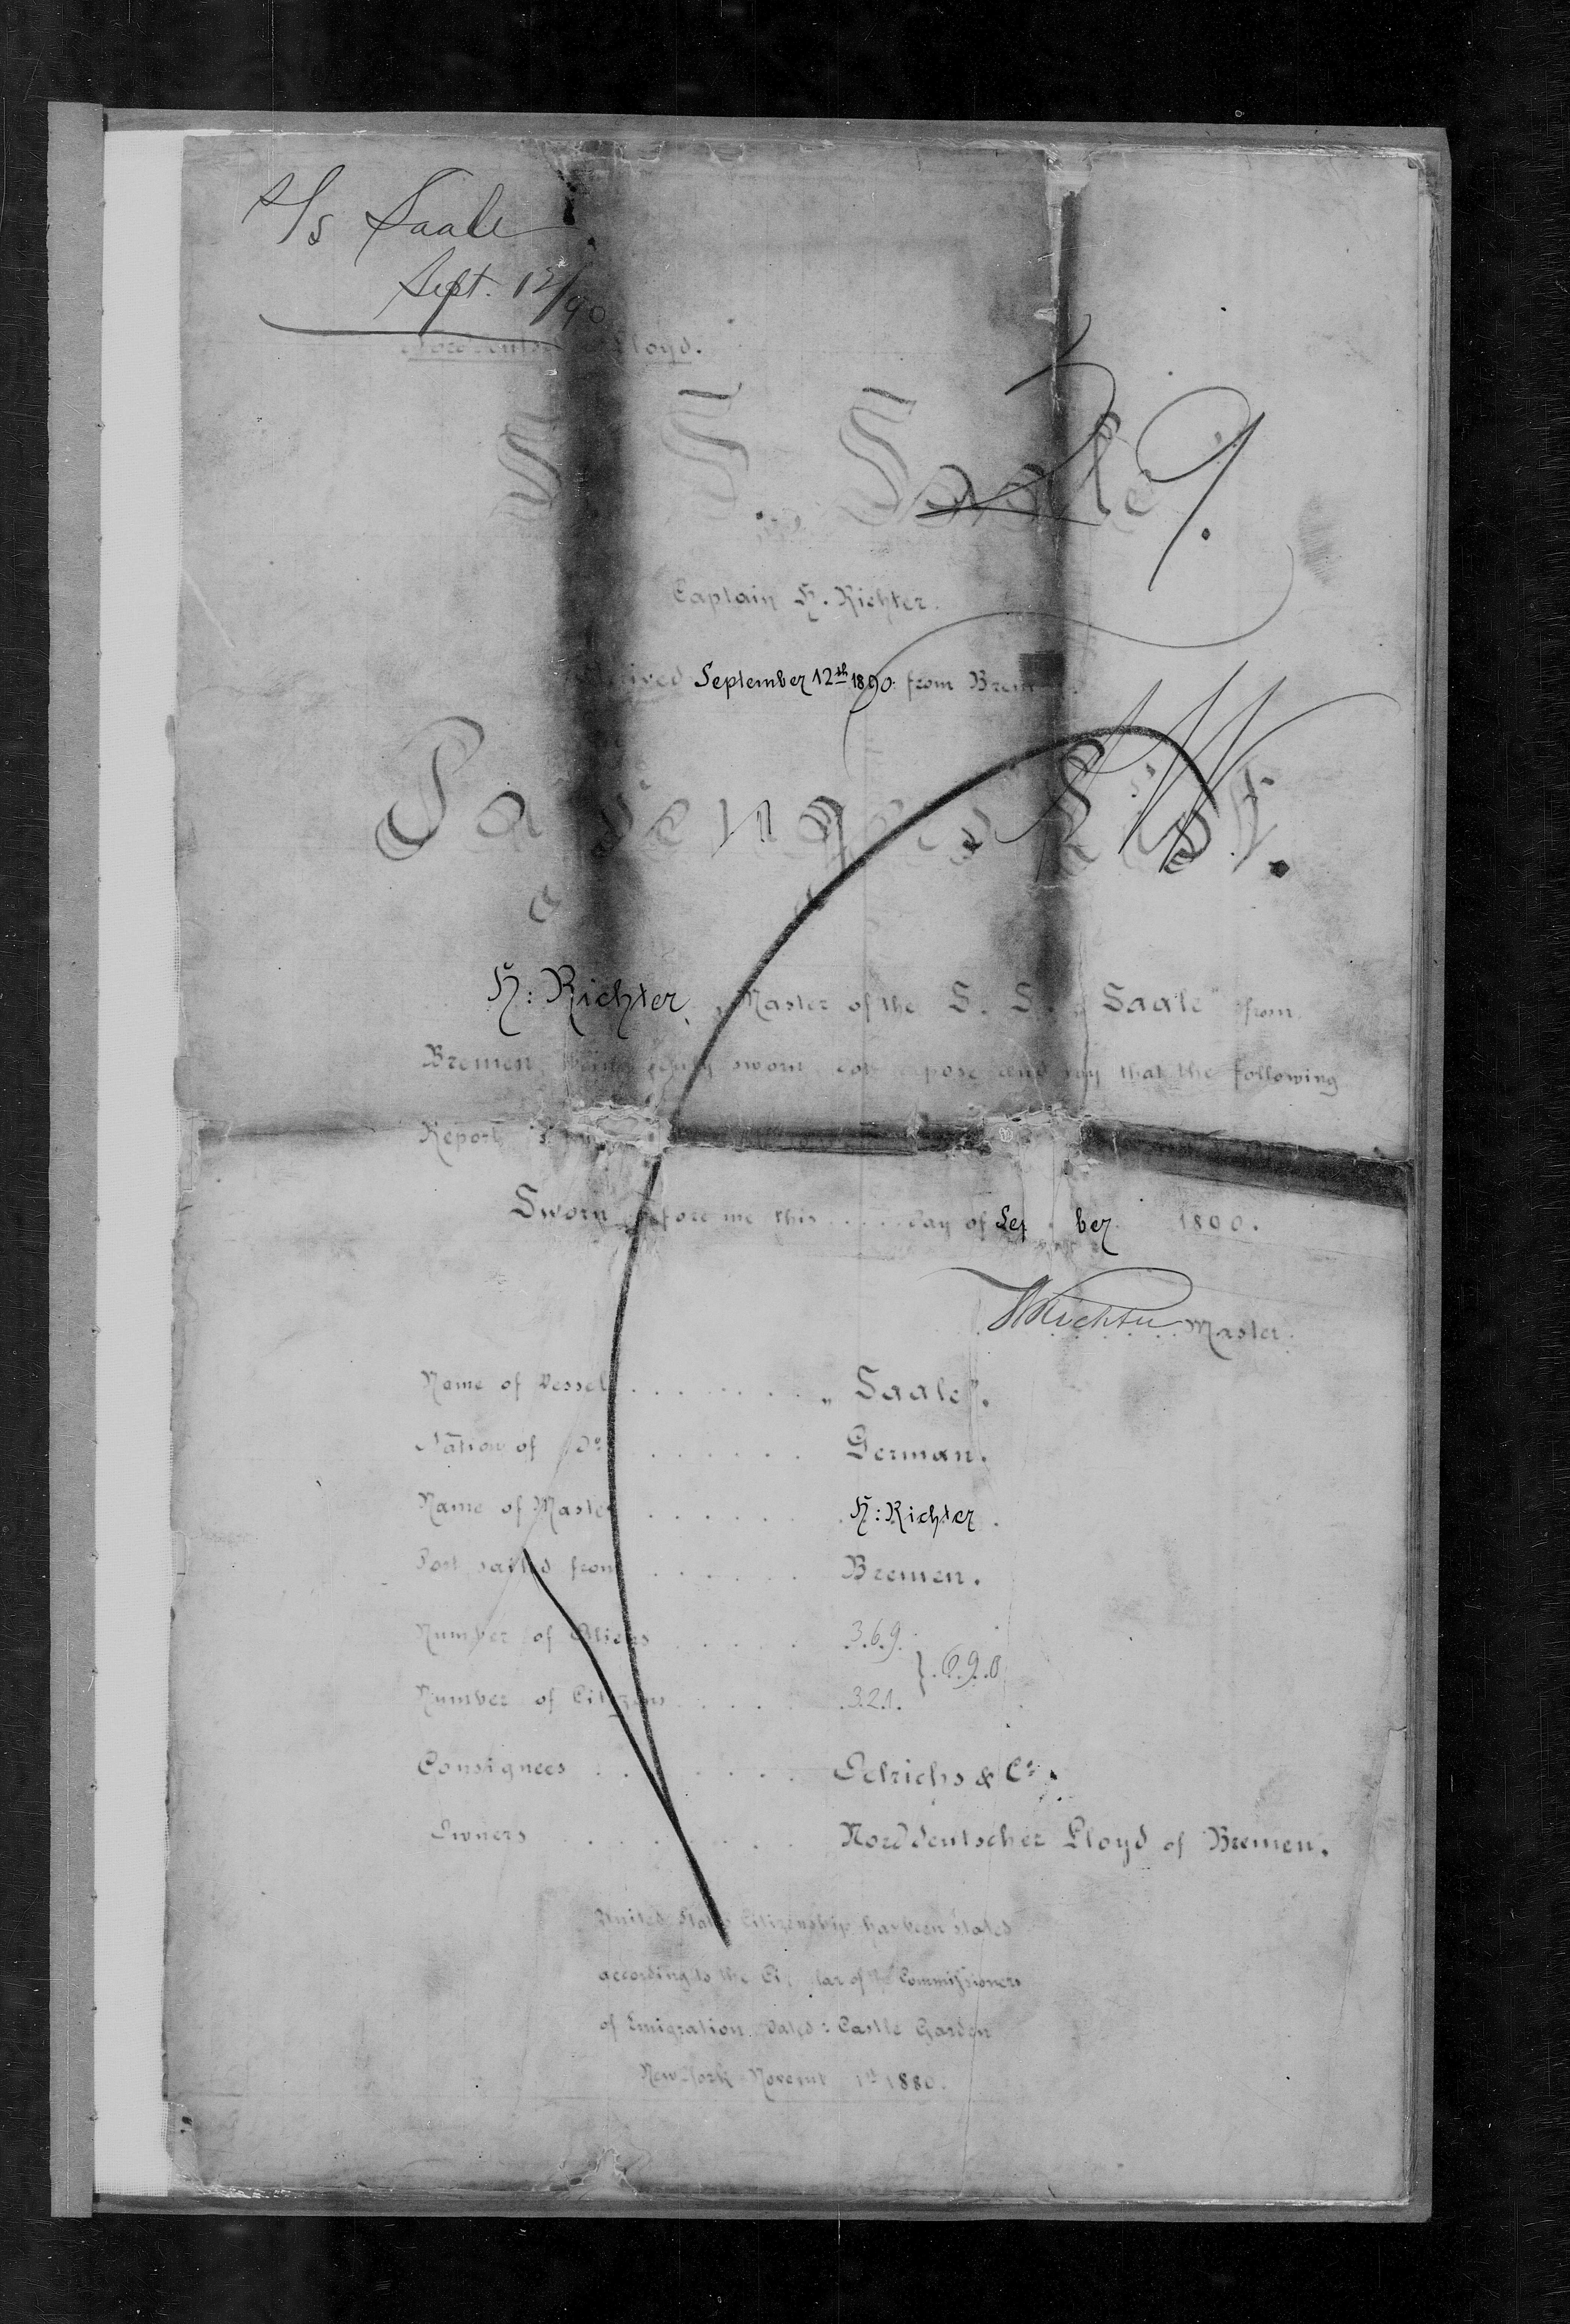 S/s Saale
Sept. 12/90
Lloyd.
S. S. Saale
Captain H. Richter.
September 12th 1890. from Bremen.
Passenger List.
H: Richter, Master of the S. S. „Saale" from
Bremen, being duly sworn, do depose and say that the following
Report
Sworn before me this ..... day of September 1890.
HRichter Master.
Name of Vessel ........ „Saale".
Nation of Do ...... German.
Name of Master ...... H: Richter.
Port sailed from ...... Bremen.
Number of Aliens ..... 369.
} 690
Number of Citizens .... 321.
Consignees ....... Oelrichs & Co.
Owners ........ Norddeutscher Lloyd of Bremen.
United States Citizenship has been stated
according to the Circular of the Commissioners
of Emigration dated: Castle Garden
New-York 1st 1880.